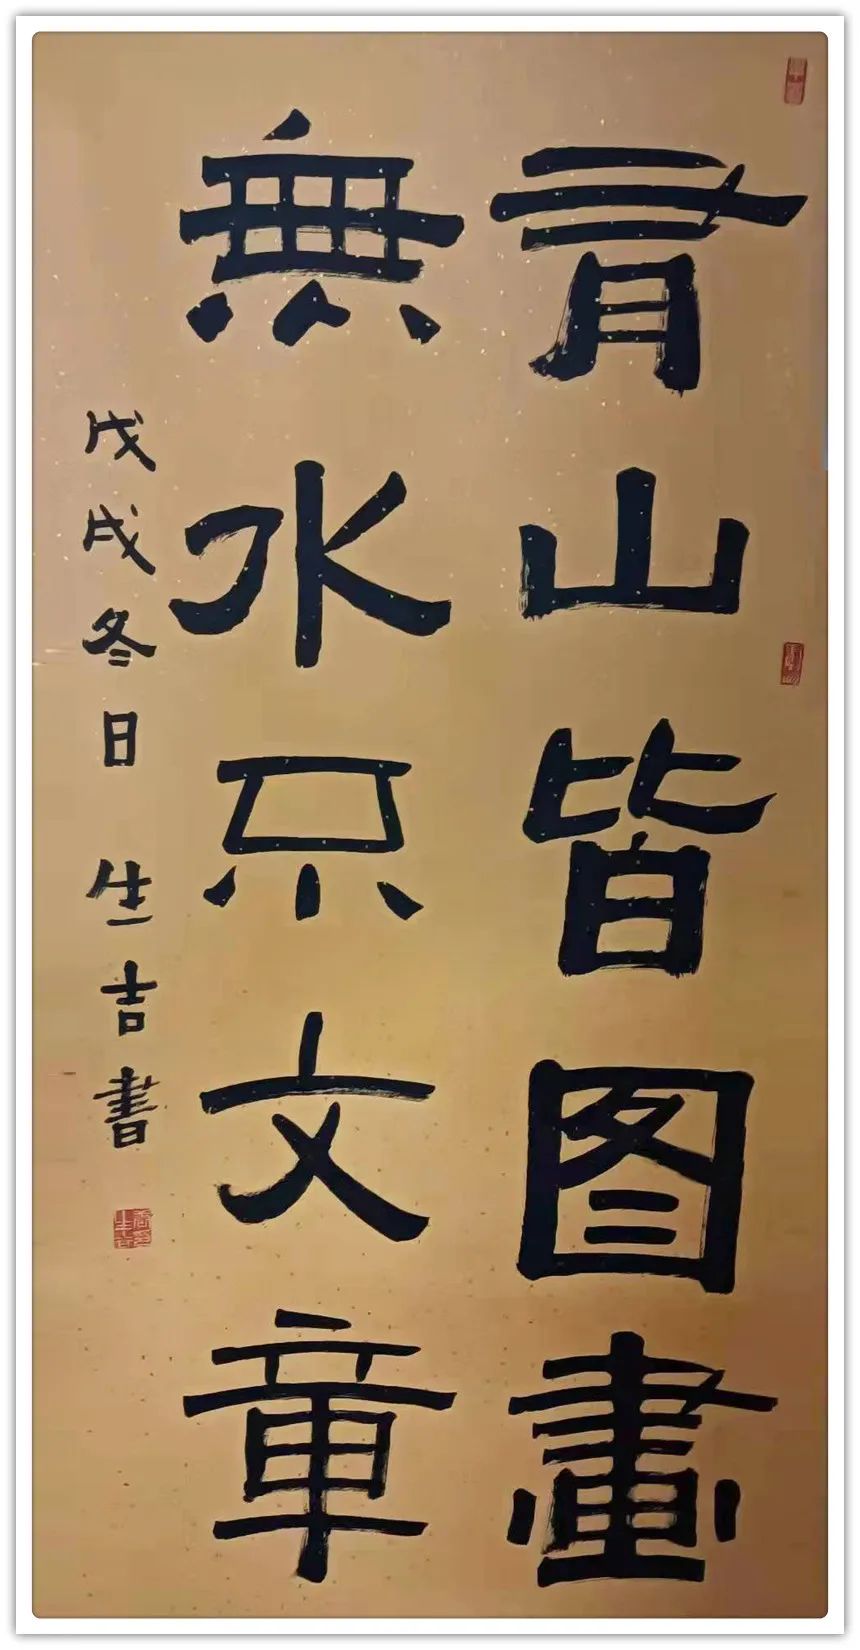 有山皆图畫
無水不文章
戊戌冬日 生吉書